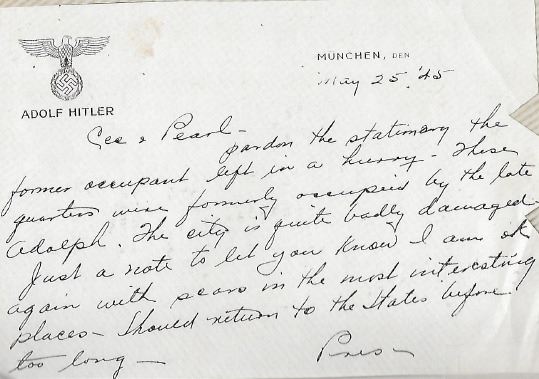 MÜNCHEN, DEN
May 25, '45
ADOLF HITLER
Cec & Pearl -
pardon the stationary the
former occupant left in a hurry - These
quarters were formerly occupied by the late
Adolph. The city is quite badly damaged -
Just a note to let you know I am ok
again with scars in the most interesting
places - Should return to the States before
too long -
Pres -